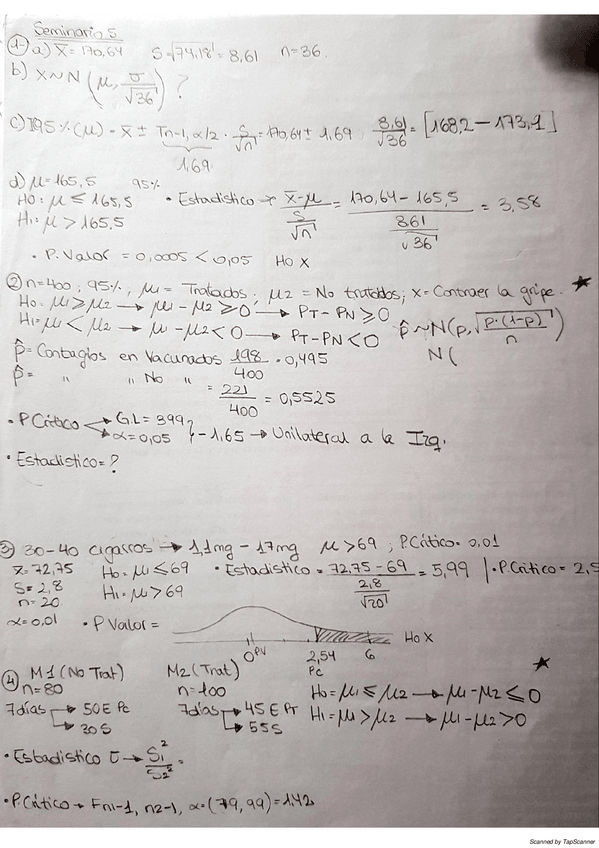 Seminario 5
1- a) x̄ = 170,64 S=√74,18 = 8,61 n=36.
b) X~N(μ, σ/√36) ?
c) I95%(μ) = x̄ ± Tn-1, α/2 · S/√n = 170,64 ± 1,69 8,61/√36 = [168,2 - 173,1]
1,69
d) μ=165,5 95%
H0: μ ≤ 165,5 • Estadístico → (x̄-μ)/(S/√n) = (170,64 - 165,5)/(8,61/√36) = 3,58
H1: μ > 165,5
• P.Valor = 0,0005 < 0,05 H0 X
2 n=400; 95%, μ1 = Tratados; μ2 = No tratados; x = Contraer la gripe. ★
H0: μ1 ≥ μ2 → μ1 - μ2 ≥ 0 → PT - PN ≥ 0 p̂ ~ N(p, √(p·(1-p)/n))
H1= μ1 < μ2 → μ1 - μ2 < 0 → PT-PN < 0 N(
p̂ = Contagios en Vacunados 198/400 = 0,495
p̂ = " " No " = 221/400 = 0,5525
• P Crítico → G.L = 399
→ α = 0,05 } -1,65 → Unilateral a la Izq.
• Estadístico = ?
3- 30-40 cigarros → 1,1mg - 17mg μ > 69 ; P.Crítico = 0,01
x̄ = 72,75 H0: μ1 ≤ 69 • Estadístico = (72,75 - 69)/(2,8/√20) = 5,99 | • P.Crítico = 2,5
S = 2,8 H1: μ > 69
n = 20
α = 0,01 • P Valor = H0 X
0 PV 2,54 6
Pc
4 M1 (No Trat) M2 (Trat) ★
n=80 n=100 H0= μ1 ≤ μ2 → μ1 - μ2 ≤ 0
7días → 50E Pc 7días → 45 E PT H1= μ1 > μ2 → μ1 - μ2 > 0
→ 30 S → 55 S
• Estadístico S1²/S2² =
• P.Crítico → Fn1-1, n2-1, α = (79, 99) = 1,42
Scanned by TapScanner